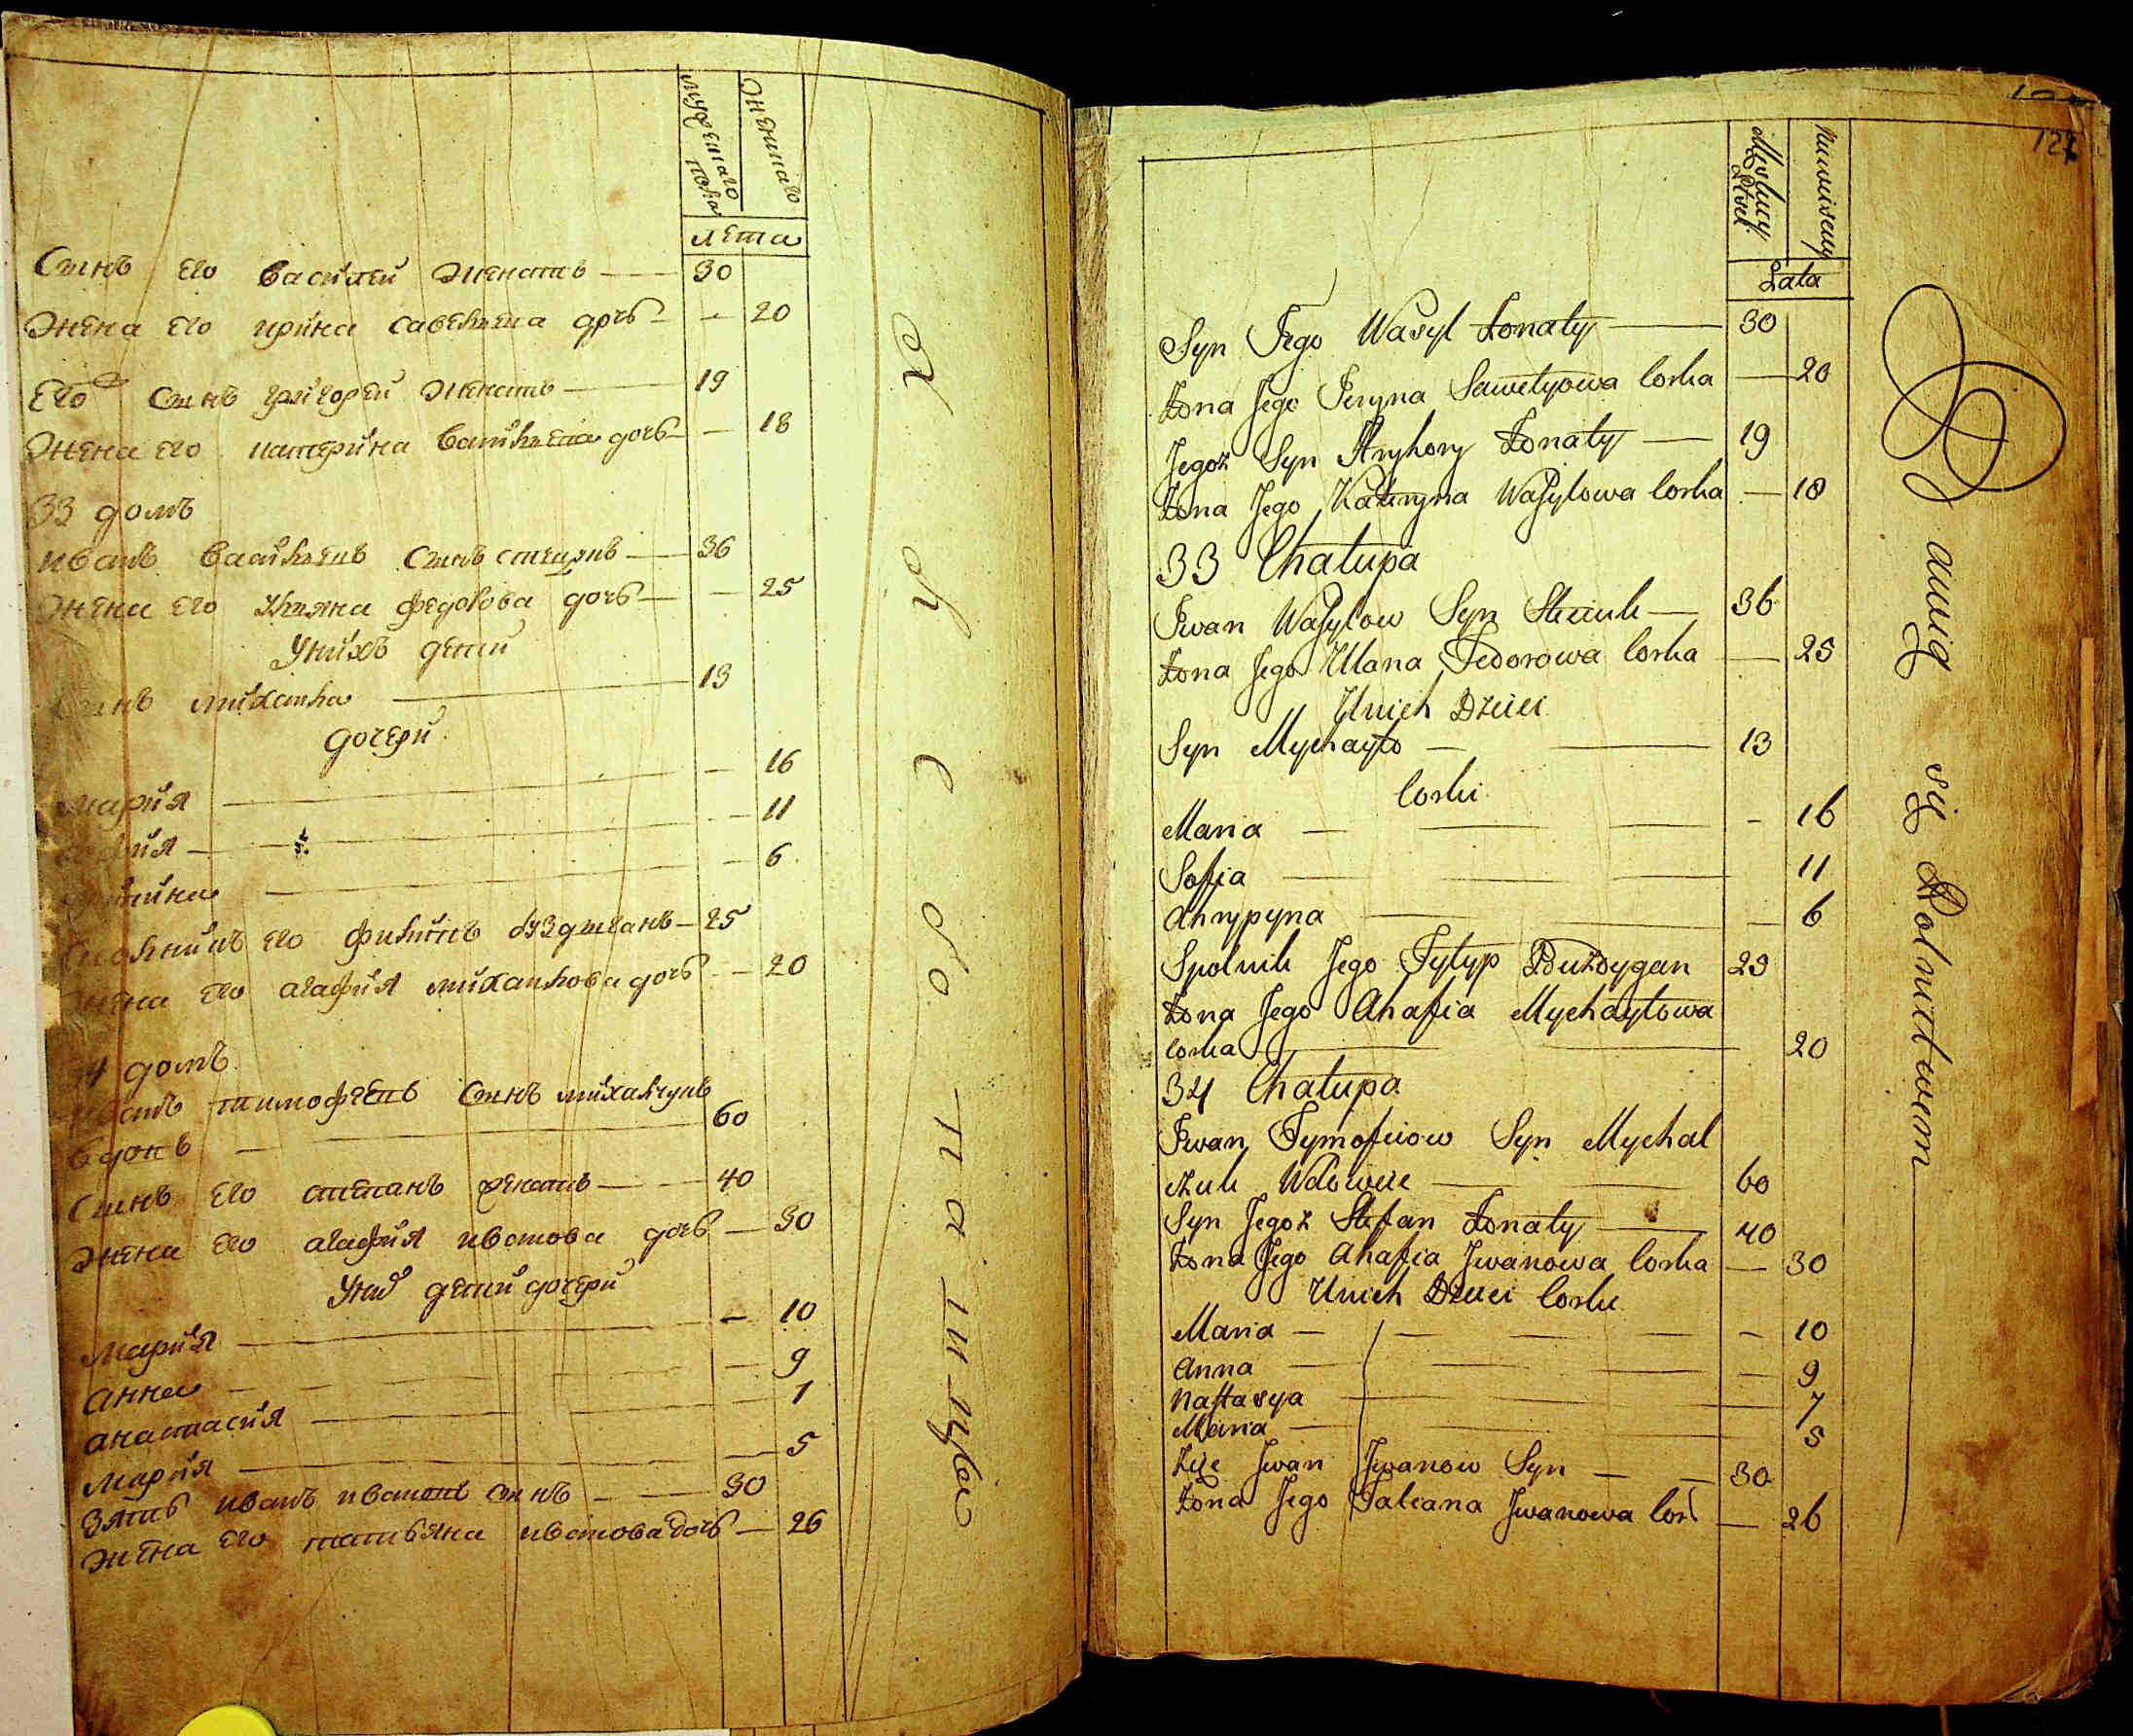 мужескаго пола
женскаго
лета
Синъ его василей женатъ — 30
Жена его ирина савелиева дочь — 20
Его синъ григорей женатъ — 19
Жена его катерина васильева дочь — 18
33 домъ
иванъ васильевъ синъ стецюкъ — 36
жена его ульяна федорова дочь — 25
У нихъ дети
Синъ михайла — 13
дочери
мария — 16
— 11
— 6
его филипъ буздиганъ — 25
жена его агафия михайлова дочь — 20
домъ
иванъ тимофеевъ синъ михалчукъ
вдовъ — 60
Синъ его стефанъ женатъ — 40
жена его агафия иванова дочь — 30
У них дети дочери
мария — 10
анна — 9
анастасия — 7
мария — 5
зять иванъ ивановъ синъ — 30
жена его татьяна иванова дочь — 26
127
Męskiey Płci
Lata
Syn Jego Wasyl Żonaty — 30
Żona Jego Jeryna Sawelyowa Corka — 20
Jegoż Syn Hryhory Żonaty — 19
Żona Jego Kateryna Wasylowa Corka — 18
33 Chałupa
Iwan Wasylow Syn Steciuk — 36
Żona Jego Ulana Fedorowa Corka — 25
U nich Dzieci
Syn Mychayło — 13
Corki
Maria — 16
Sofia — 11
Ahrypyna — 6
Spolnik Jego Fylyp Buzdygan 25
Żona Jego Ahafia Mychayłowa
Corka — 20
34 Chałupa
Iwan Tymofiiow Syn Mychal
czuk Wdowiec — 60
Syn Jegoż Stefan Żonaty — 40
Żona Jego Ahafia Jwanowa Corka — 30
U nich Dzieci Corki
Maria — 10
Anna — 9
Nastasya — 7
Maria — 5
Zięc Jwan Jwanow Syn — 30
Żona Jego Tatiana Jwanowa Cor — 26
się Rolnictwem